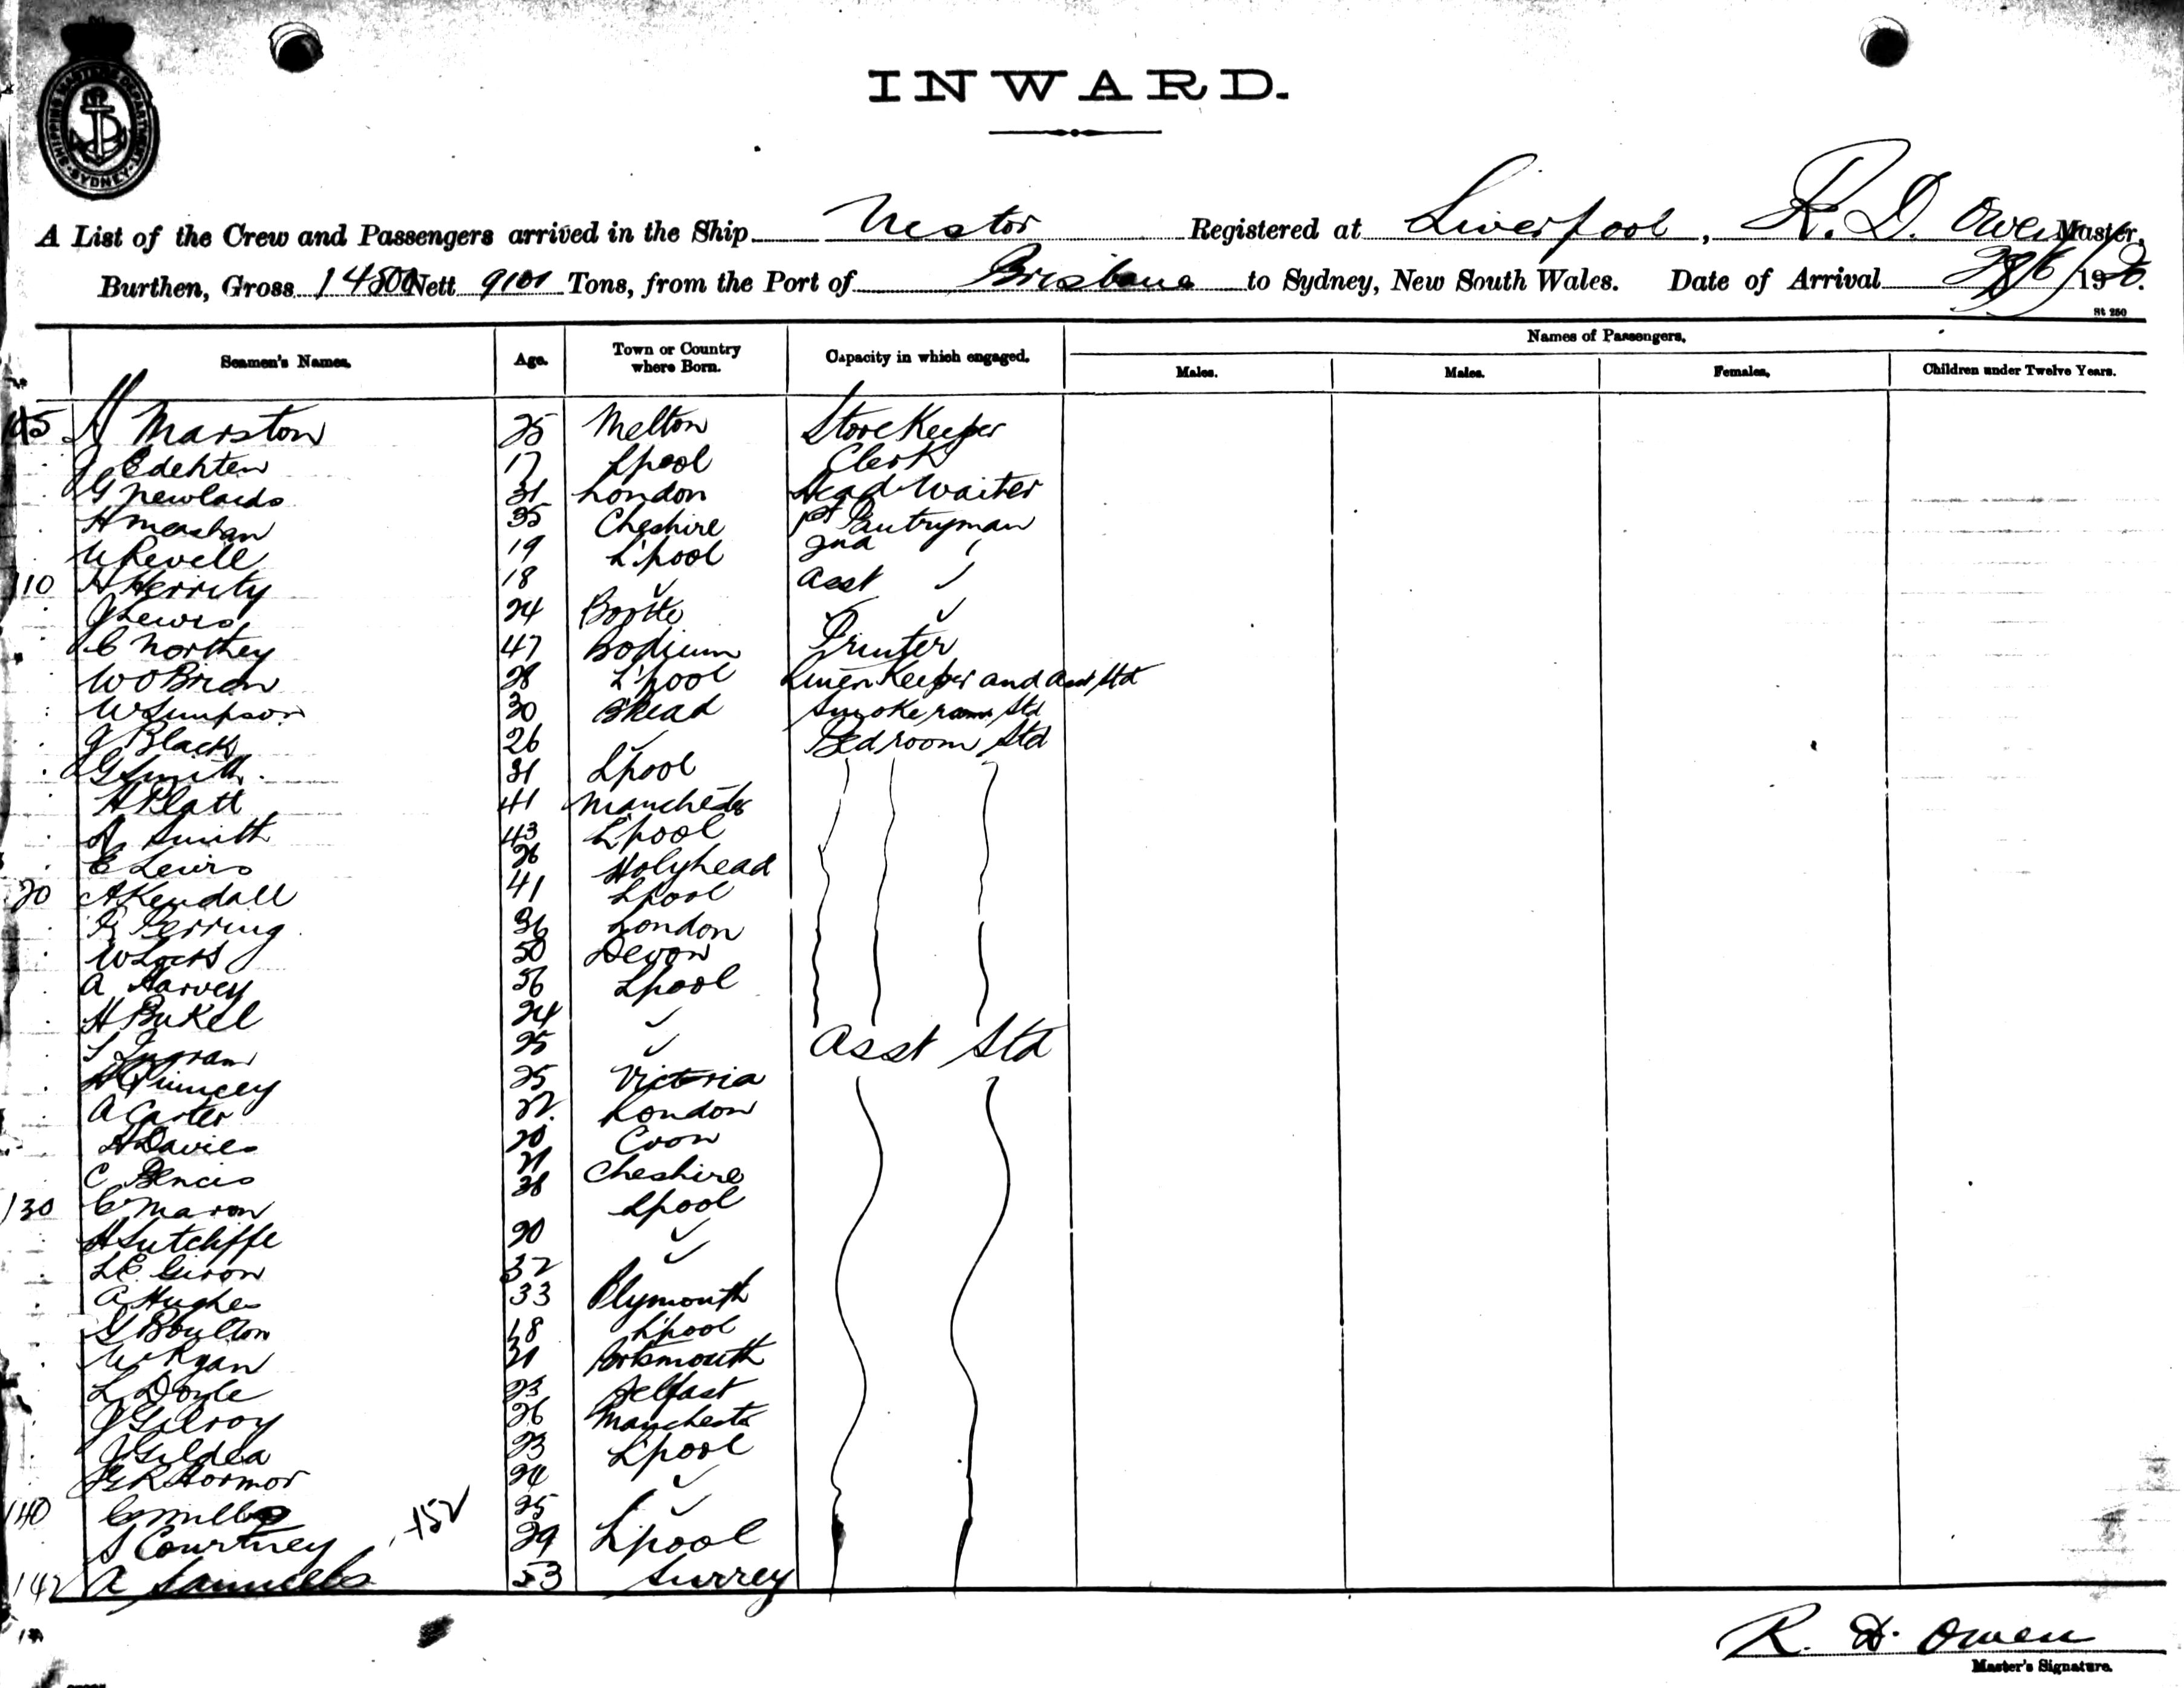 SHIPPING MASTER'S DEPARTMENT SYDNEY
INWARD.
A List of the Crew and Passengers arrived in the Ship Nestor Registered at Liverpool, R. D. Owen Master,
Burthen, Gross 14500 Nett 9101 Tons, from the Port of Brisbane to Sydney, New South Wales. Date of Arrival 28/6/1926.
St 250
Names of Passengers.
Seamen's Names. Age. Town or Country where Born. Capacity in which engaged. Males. Males. Females. Children under Twelve Years.
105 H Marston 25 Melton Store Keeper
J Edehten 17 Lpool Clerk
G Newlands 31 London Head Waiter
H Meashan 35 Cheshire 1st Pantryman
W Revell 19 L'pool 2nd "
110 H Herrity 18 ✓ Asst "
J Lewis 24 Bootle ✓ ✓
C Northey 47 Bodium Printer
W O Brien 28 L'pool Linen Keeper and Asst Std
W Simpson 30 B'Head Smoke room Std
J Black 26 ✓ Bedroom Std
G Smith 31 Lpool
H Platt 41 Manchester
A Smith 43 L'pool
E Lewis 26 Holyhead
20 A Kendall 41 Lpool
R Perring 36 London
W Locks 50 Devon
A Harvey 56 Lpool
H Bukel 24 ✓
S Ingram 25 ✓ Asst Std
H Quincey 25 Victoria
A Carter 27 London
H Davies 20 Coon
C Bencis 21 Cheshire
130 C Maron 38 Lpool
H Sutcliffe 20 ✓
L E Giron 32 ✓
A Hughes 33 Plymouth
G Boulton 18 L'pool
W Ryan 21 Portsmouth
L Doyle 23 Belfast
J Gilroy 26 Manchester
J Gildea 23 L'pool
G R Hormor 24 ✓
140 C Mills 25 ✓
S Courtney 29 L'pool
142 A Samuels 53 Surrey
R. D. Owen
Master's Signature.